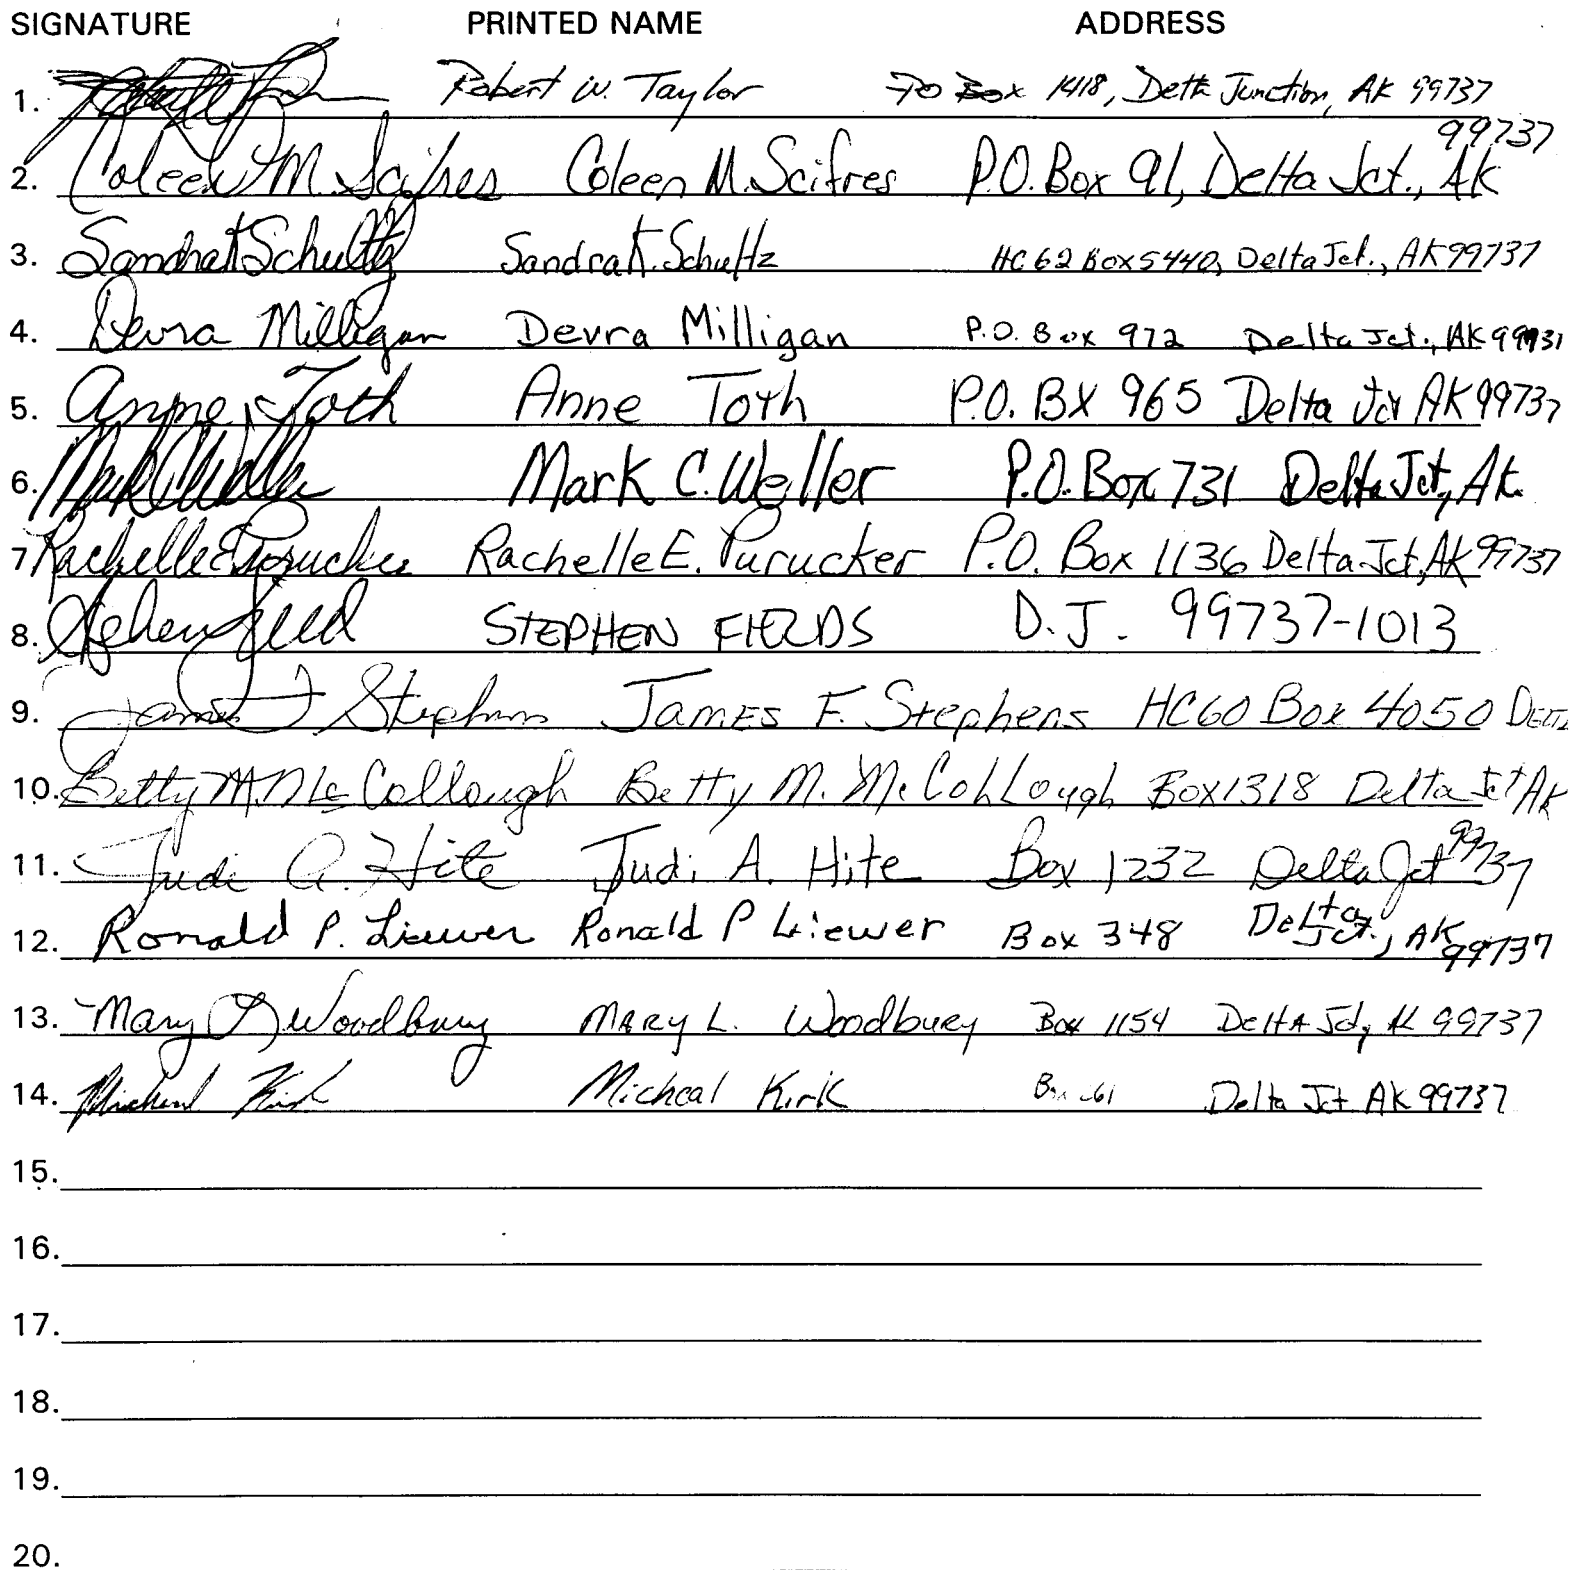 SIGNATURE PRINTED NAME ADDRESS
1. Robert W. Taylor PO Box 1418, Delta Junction, AK 99737
99737
2. Coleen M. Scifres Coleen M. Scifres P.O. Box 91, Delta Jct., AK
3. Sandra K Schultz Sandra K. Schultz HC62 Box 5440, Delta Jct., AK 99737
4. Devra Milligan Devra Milligan P.O. Box 972 Delta Jct., AK
5. Anne Toth Anne Toth P.O. BX 965 Delta Jct AK 99737
6. Mark C. Weller P.O. Box 731 Delta Jct, Ak.
7 Rachelle E Purucker Rachelle E. Purucker P.O. Box 1136 Delta Jct, AK 99737
8. STEPHEN FIELDS D.J. 99737-1013
9. James F Stephens JAMES F. Stephens HC60 Box 4050 DELTA
10. Betty M. McCollough Betty M. McCohLough Box 1318 Delta Jct Ak
11. Judi A. Hite Judi A. Hite Box 1232 Delta Jct 99737
12. Ronald P. Liewer Ronald P Liewer Box 348 Delta Jct., AK 99737
13. Mary L Woodbury MARY L. Woodbury Box 1154 Delta Jct, AK 99737
14. Micheal Kirk Micheal Kirk Delta Jct AK 99737
15.
16.
17.
18.
19.
20.